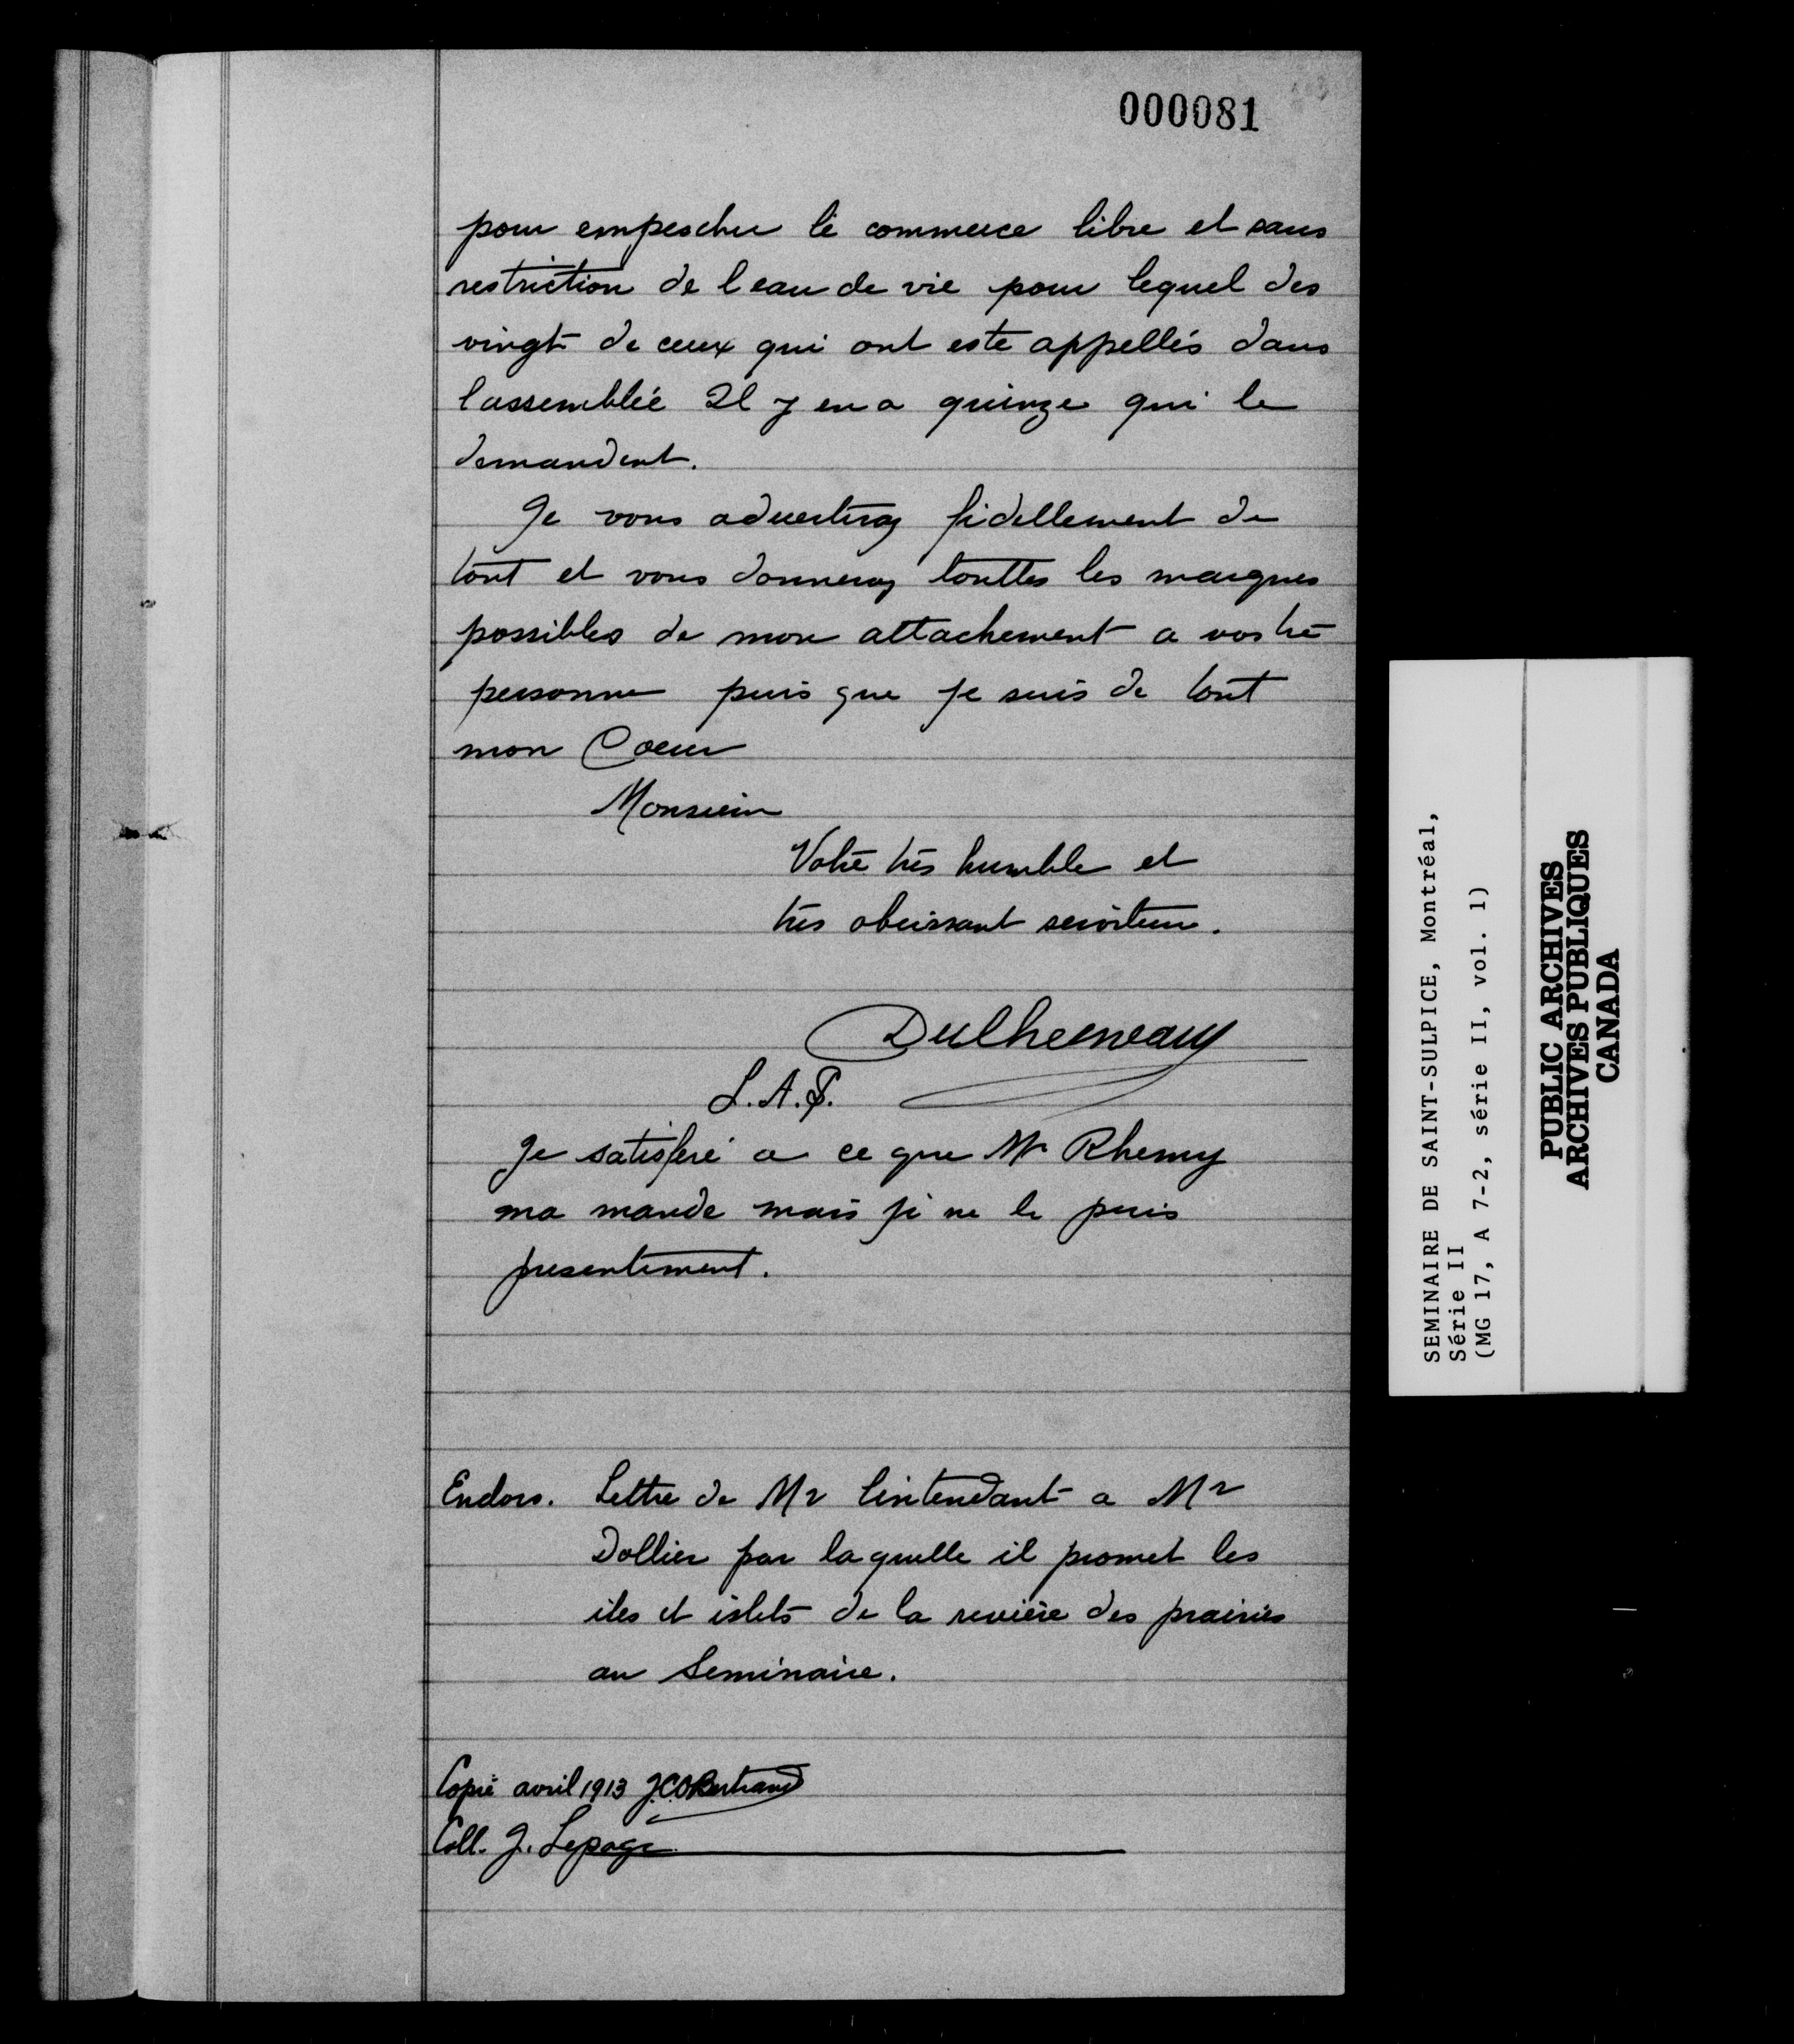 000081
pour empescher le commerce libre et sans
restriction de leau de vie pour lequel des
vingt de ceux qui ont este appellés dans
lassemblée Il y en a quinze qui le
demandent.
Je vous advertiray fidellement de
tout et vous donneray touttes les marques
possibles de mon attachement a vostre
personne puis que je suis de tout
mon Coeur
Monsieur
Votre très humble et
très obeissant serviteur.
Duchesneau
L.A.S.
Je satisferé a ce que Mr Rhemy
ma mande mais je ne le puis
presentement.
Endors. Lettre de Mr lintendant a Mr
Dollier par laquelle il promet les
iles et islets de la reviere des prairies
au Seminaire.
Copié avril 1913 J.C.O Bertrand
Coll. J. Lepage
SEMINAIRE DE SAINT-SULPICE, Montréal,
Série II
(MG 17, A 7-2, série II, vol. 1)
PUBLIC ARCHIVES
ARCHIVES PUBLIQUES
CANADA